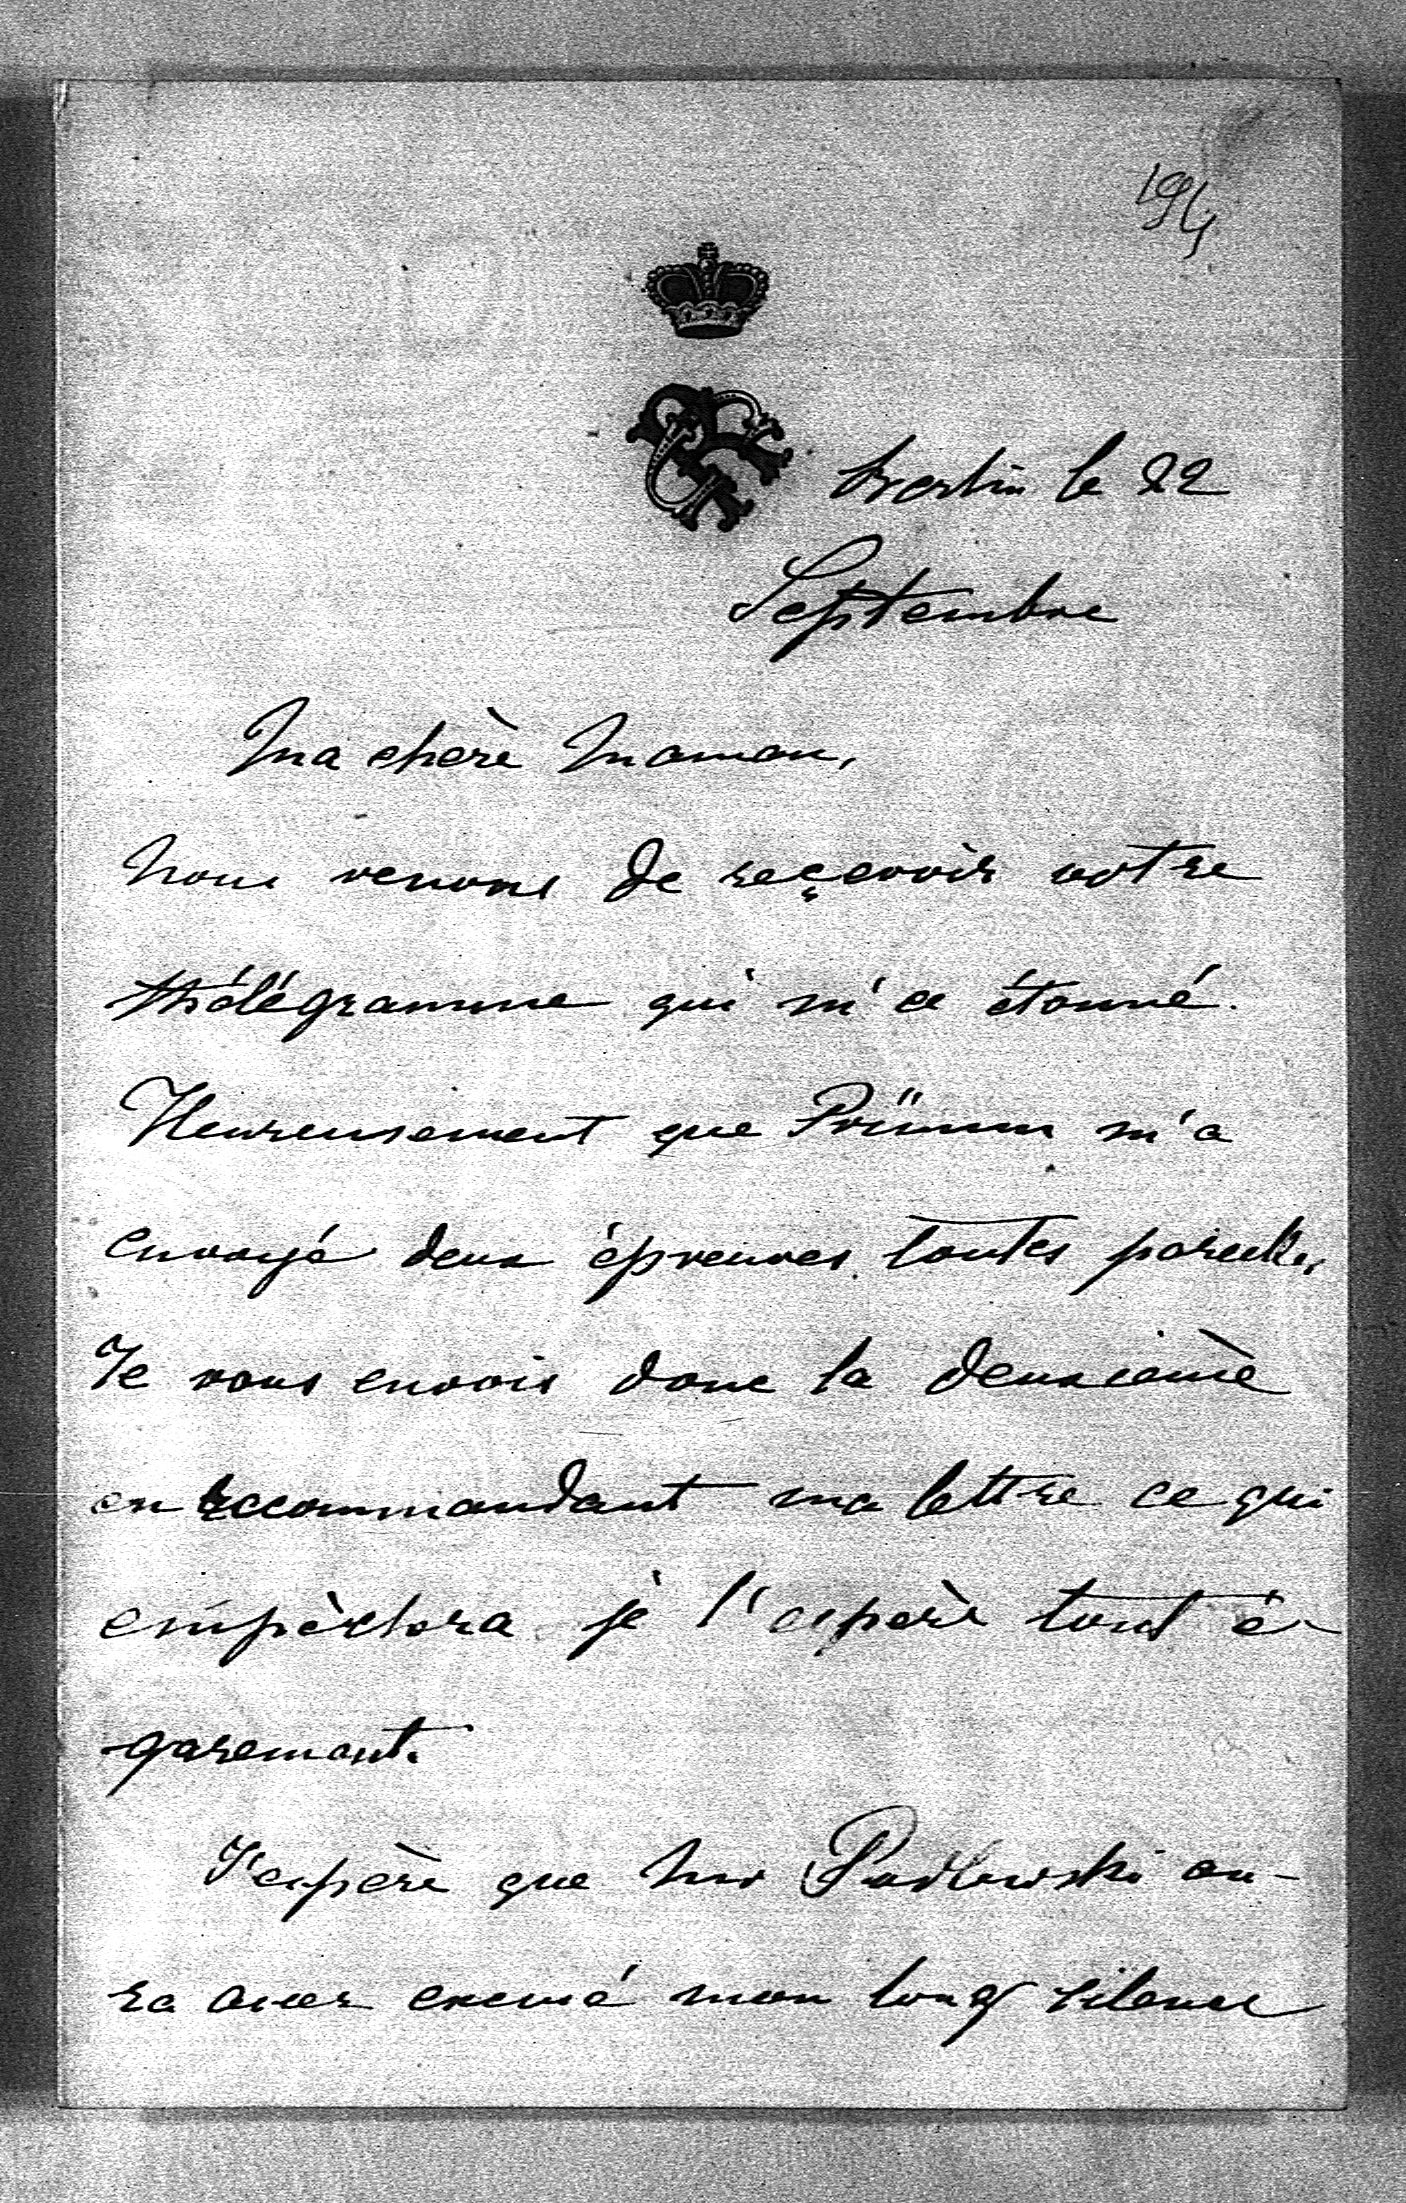 194
Berlin le 22
Septembre
Ma chère Maman,
Nous venons de reçevoir votre
thélégramme qui m'a étonné.
Heureusement que Prümm m'a
envoyé deux épreuves toutes pareilles,
Je vous envois donc la deuxième
en reccommandant ma lettre ce qui
empèchera je l'espère tout é-
garement.
J'espère que Mr Padlewski au-
ra assez excusé mon long silence